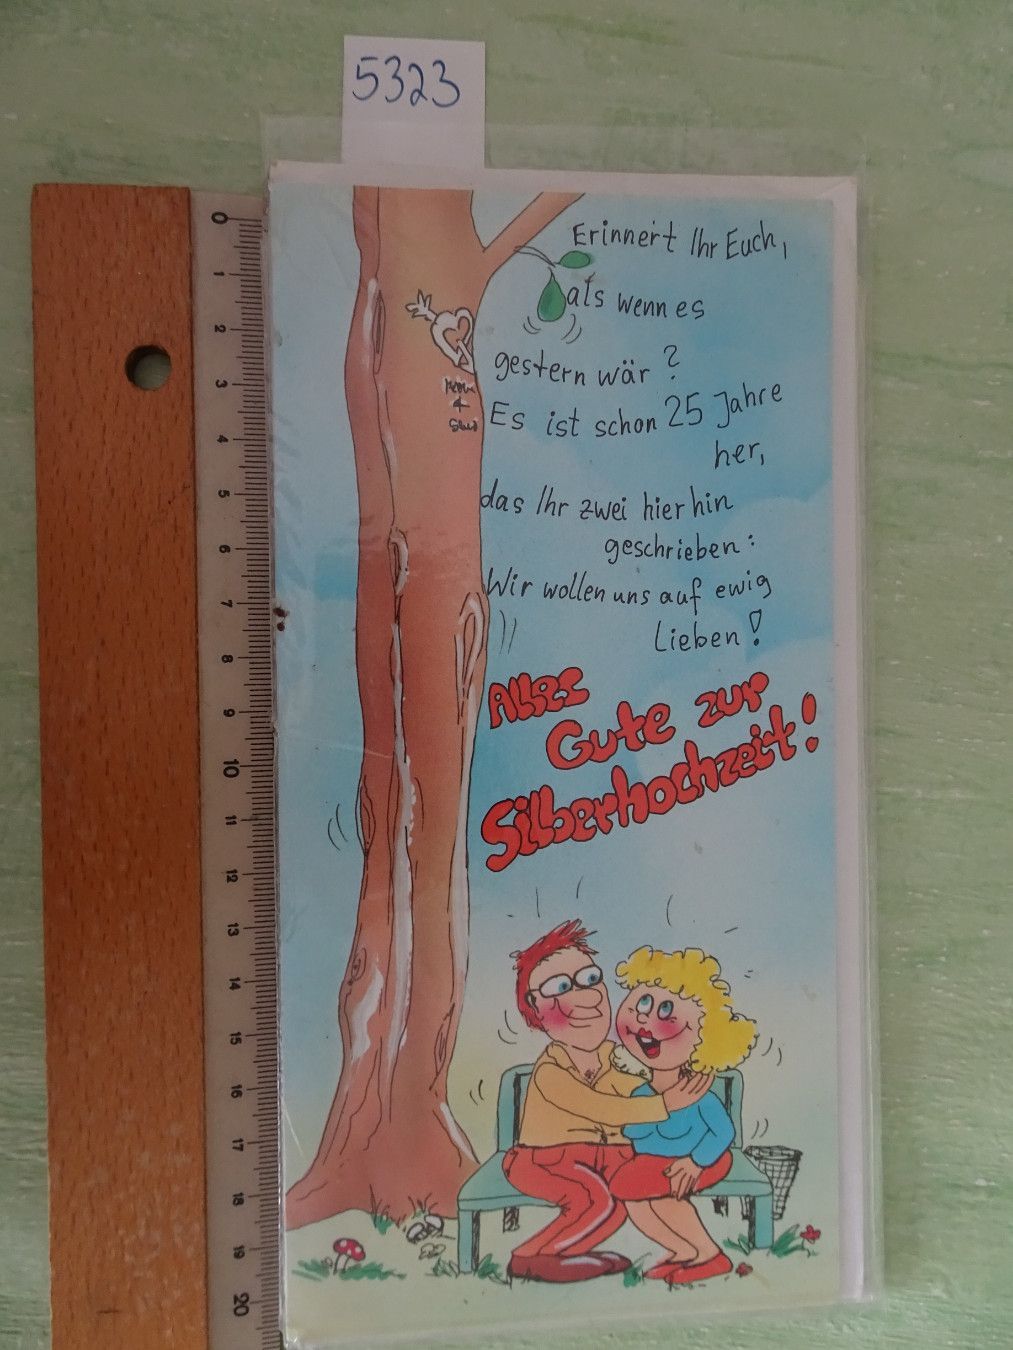 5323
Erinnert Ihr Euch,
als wenn es
gestern wär?
Es ist schon 25 Jahre
her,
das Ihr zwei hierhin
geschrieben:
Wir wollen uns auf ewig
Lieben!
Alles
Gute zur
Silberhochzeit!
0
1
2
3
4
5
6
7
8
9
10
11
12
13
14
15
16
17
18
19
20